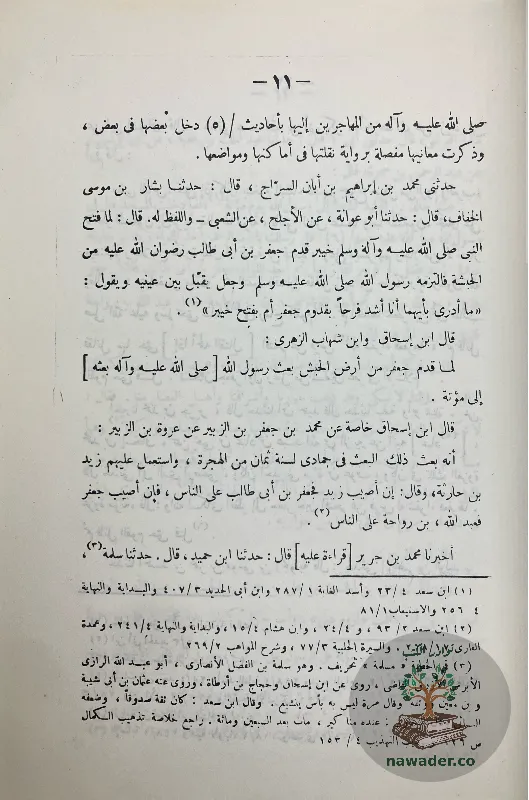 — ١١ —
صلى الله عليه وآله من المهاجرين إليها بأحاديث / (٥) دخل بعضها فى بعض ،
وذكرت معانيها مفصلة برواية نقلتها فى أماكنها ومواضعها .
حدثنى محمد بن إبراهيم بن أبان السرّاج ، قال : حدثنا بشار بن موسى
الخفاف، قال : حدثنا أبو عوانة ، عن الأجلح ، عن الشعبى ــ واللفظ له. قال : لما فتح
النبى صلى الله عليه وآلة وسلم خيبر قدم جعفر بن أبى طالب رضوان الله عليه من
الحبشة فالتزمه رسول الله صلى الله عليه وسلم وجعل يقبّل بين عينيه ويقول :
«ما أدرى بأيهما أنا أشد فرحاً بقدوم جعفر أم بفتح خيبر» (١).
قال ابن إسحاق وابن شهاب الزهرى :
لما قدم جعفر من أرض الحبش بعث رسول الله [ صلى الله عليه وآله بعثه ]
إلى مؤتة .
قال ابن إسحاق خاصة عن محمد بن جعفر بن الزبير عن عروة بن الزبير :
أنه بعث ذلك البعث فى جمادى لسنة ثمان من الهجرة ، واستعمل عليهم زيد
بن حارثة، وقال: إن أصيب زيد فجعفر بن أبى طالب على الناس ، فإن أصيب جعفر
فعبد الله ، بن رواحة على الناس (٢) .
أخبرنا محمد بن جرير [قراءة عليه] قال : حدثنا ابن حميد، قال . حدثنا سلمة (٣) ،
(١) ابن سعد ٤/ ٢٣ وأسد الغابة ١/ ٢٨٧ وابن أبى الحديد ٣/ ٤٠٧ والبداية والنهاية
٤ ٢٥٦ والاستيعاب ١/ ٨١
(٢) ابن سعد ٢/ ٩٣ ، و ٤/ ٢٤ ، وابن هشام ٤/ ١٥ ، والبداية والنهاية ٤/ ٢٤١ ، وعمدة
القارى والسيرة الحلبية ٣/ ٧٧ ، وشرح المواهب ٢/ ٢٦٩
(٣) فى الخطية مسلمة تحريف . وهو سلمة بن الفضل الأنصارى ، أبو عبد الله الرازى
الأبرش روى عن ابن إسحاق وحجاج بن أرطاة، وروى عنه عثمان بن أبى شيبة
وقال مرة ليس به بأس يتشيع . وقال ابن سعد : كان ثقة صدوقاً ، وضعفه
عنده مناكير ، مات بعد التسعين ومائة . راجع خلاصة تذهيب الكمال
ص التهذيب ٤/ ١٥٣
نوادر الكتب
nawader.co